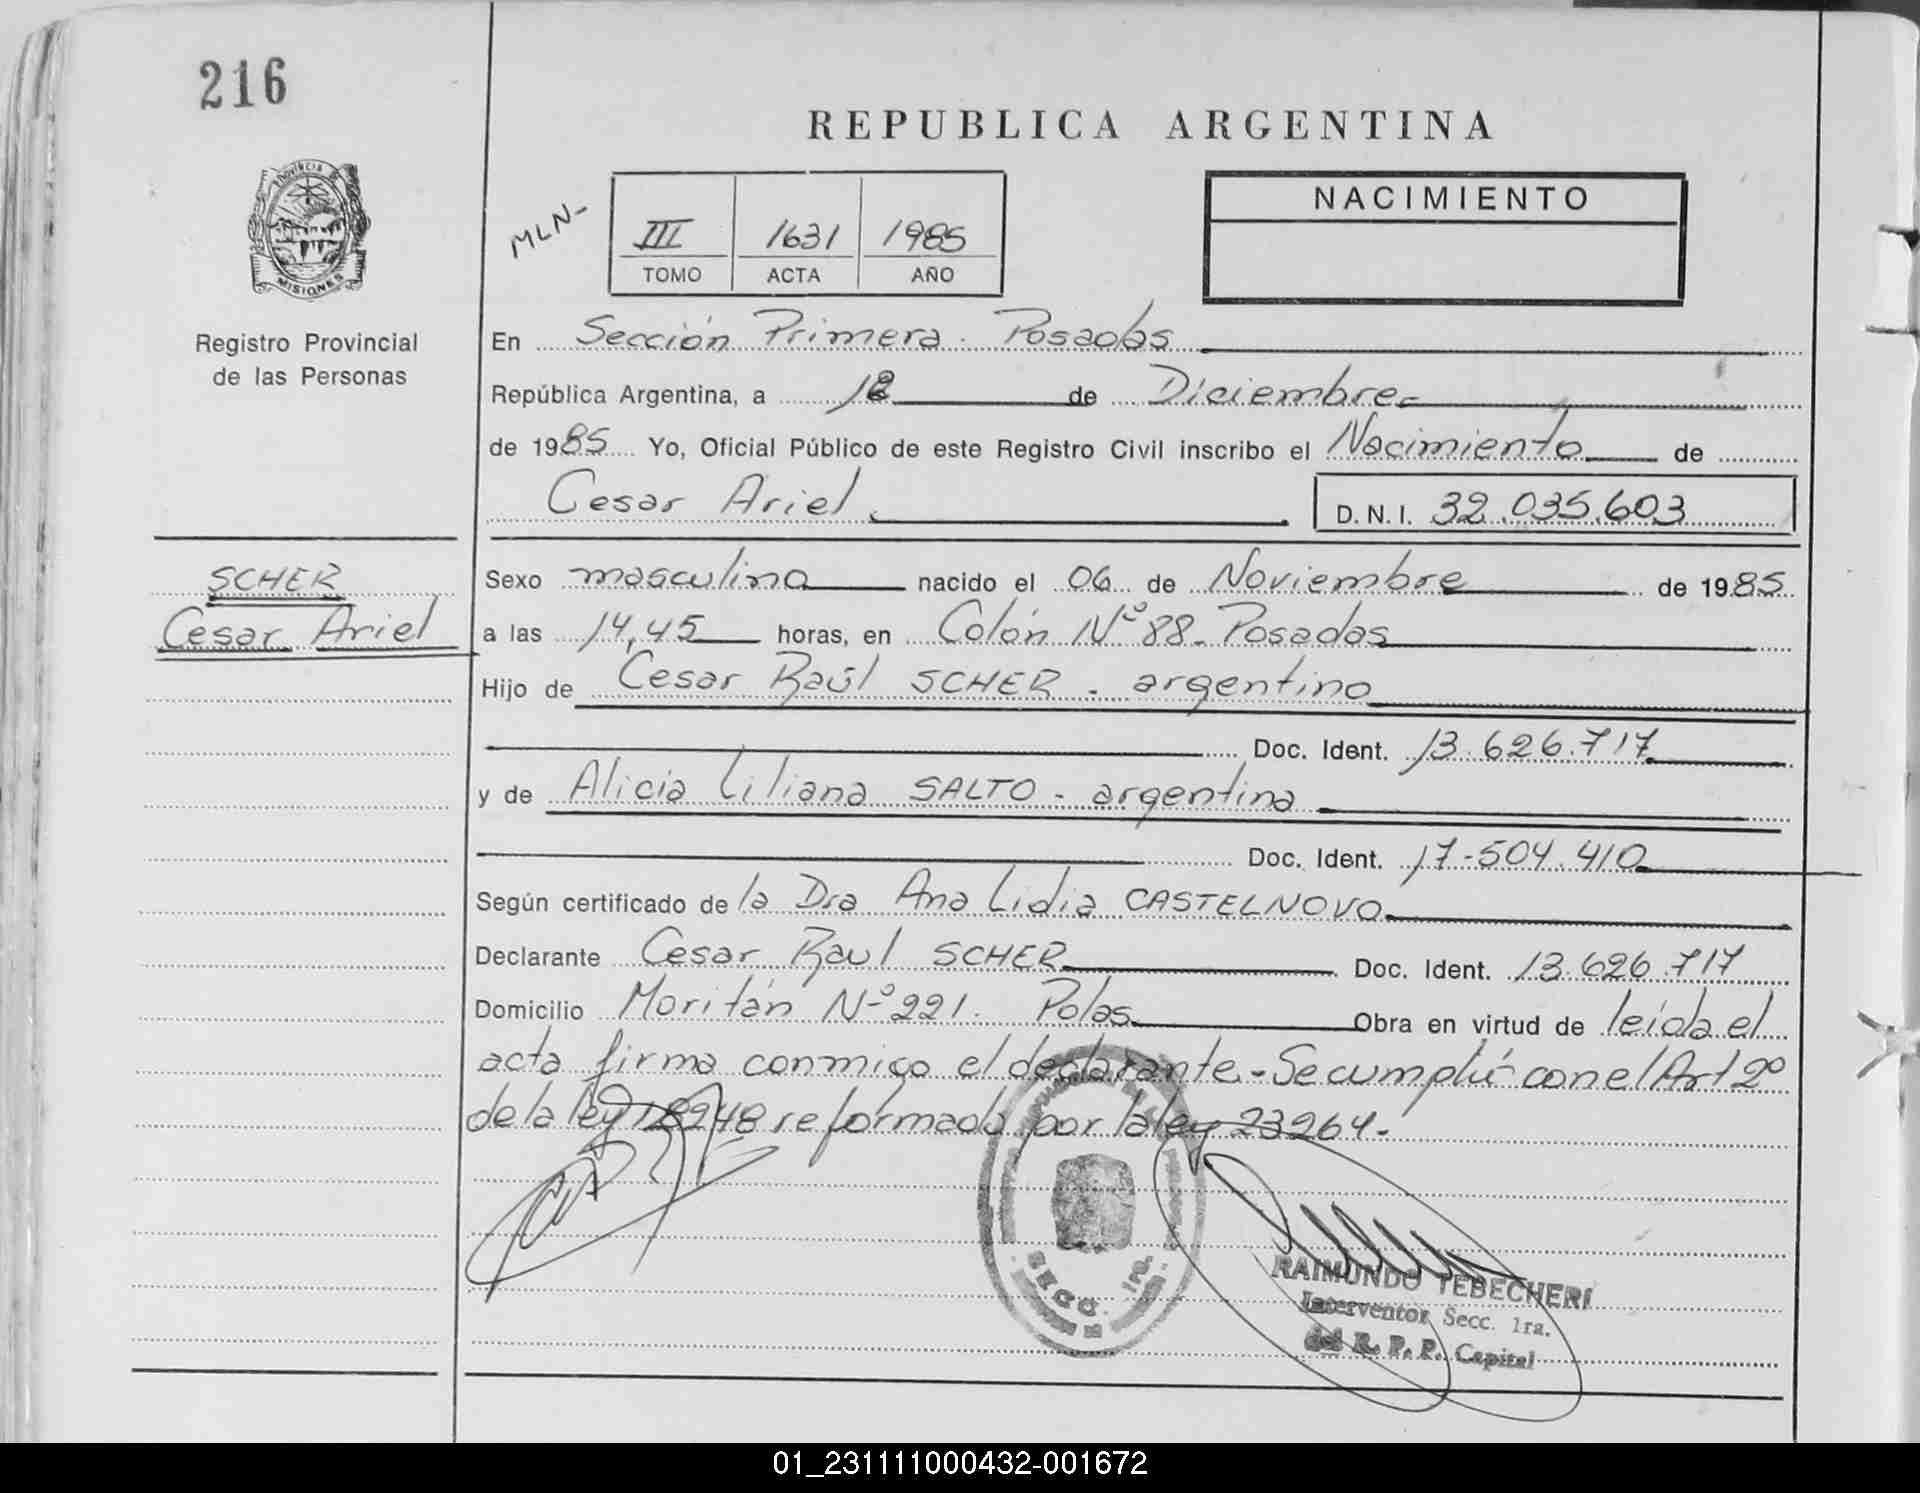 216
REPUBLICA ARGENTINA
PROVINCIA DE
MISIONES
MLN-
III 1631 1985
TOMO ACTA AÑO
NACIMIENTO
Registro Provincial
de las Personas
En Sección Primera. Posadas
República Argentina, a 18 de Diciembre
de 1985 Yo, Oficial Público de este Registro Civil inscribo el Nacimiento de
Cesar Ariel D.N.I. 32.035.603
SCHER
Cesar Ariel
Sexo masculino nacido el 06 de Noviembre de 1985
a las 14,45 horas, en Colón Nº 88. Posadas
Hijo de Cesar Raúl SCHER. argentino
Doc. Ident. 13.626.717
y de Alicia Liliana SALTO - argentina
Doc. Ident. 17-504.410
Según certificado de la Dra Ana Lidia CASTELNOVO
Declarante Cesar Raul SCHER Doc. Ident. 13.626.717
Domicilio Moritán Nº 221. Pdas Obra en virtud de leída el
acta firma conmigo el declarante.- Se cumplió con el Art 2º
de la ley 18248 reformado por la ley 23264.-
SECC. 1ra.
RAIMUNDO TEBECHERI
Interventor Secc. 1ra.
del R. P. P. Capital
01_231111000432-001672